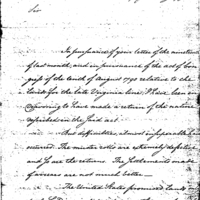 Sir
In pursuance of your letter of the nineteenth
of last month, and in pursuance of the act of Con-
gress of the tenth of August 1790 relative to the
lands for the late Virginia line, I have been en-
deavoring to have made a return of the nature
specified in the said act.
But difficulties, almost insuperable have
occurred. The muster rolls are extremely defective
and so are the returns. The settlements made
of arrears are not much better—
The United States promised lands